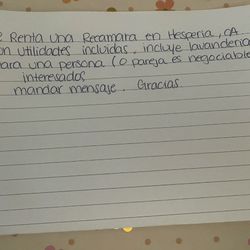 Renta una Recamara en Hesperia, CA
on utilidades incluidas, incluye lavanderia
para una persona (o pareja es negociable
interesados
mandar mensaje. Gracias.